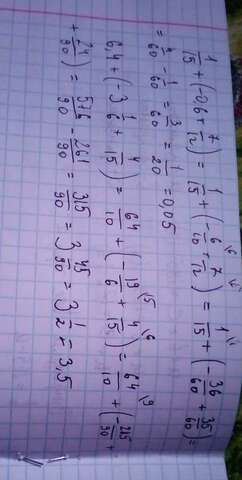 1/15 + (-0,6 + 7/12) = 1/15 + (-6/10 + 7/12) = 1/15 + (-36/60 + 35/60) =
= 4/60 - 1/60 = 3/60 = 1/20 = 0,05
6,4 + (-3 1/6 + 4/15) = 64/10 + (-19/6 + 4/15) = 64/10 + (
+ 24/90) = 576/90 - 261/90 = 315/90 = 3 45/90 = 3 1/2 = 3,5